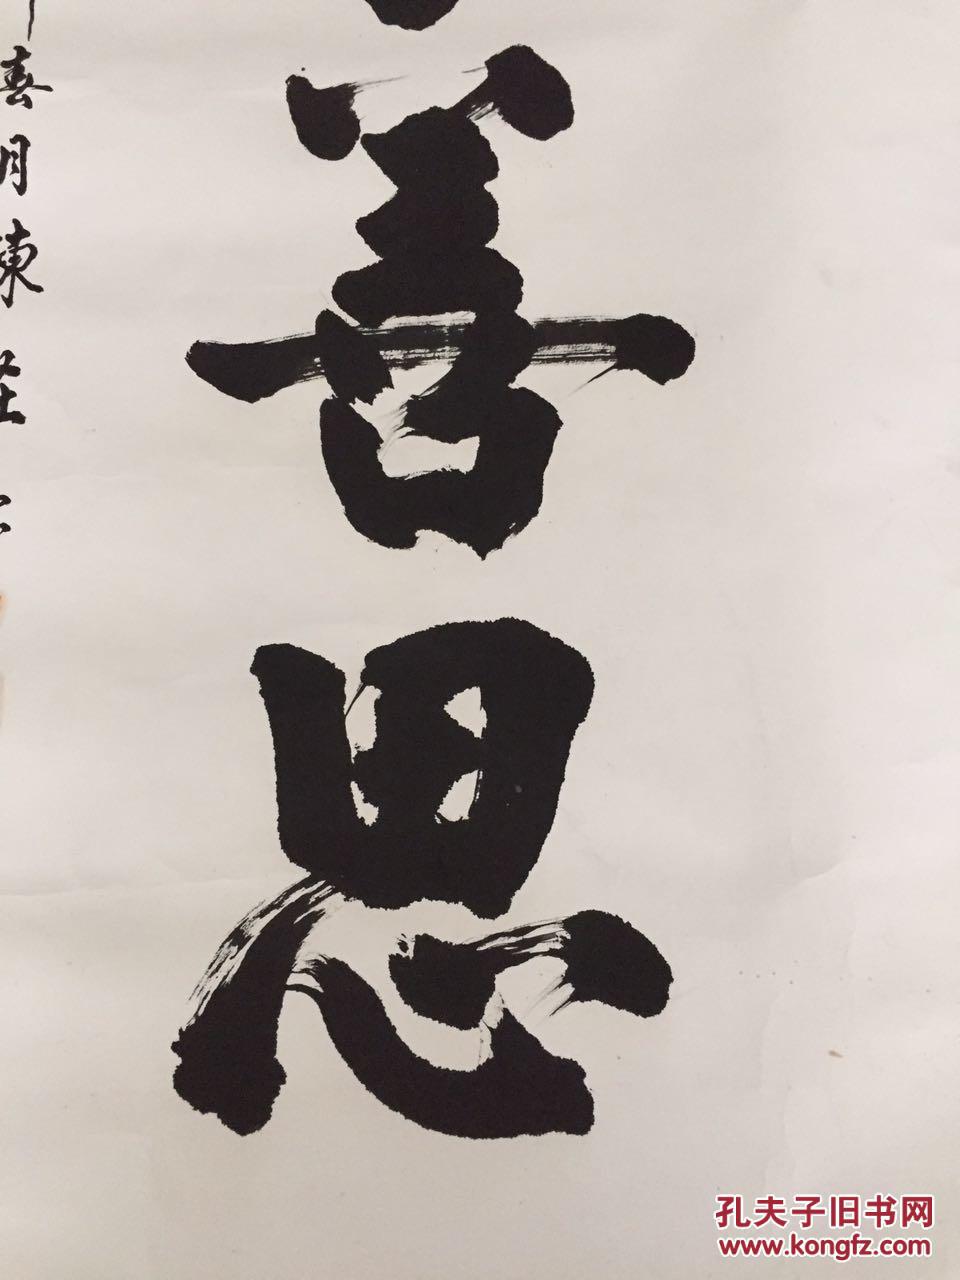 善思
喜月东
孔夫子旧书网
www.kongfz.com